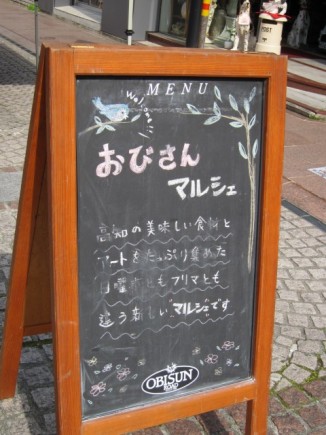 MENU
おびさん
マルシェ
高知の美味しい食料と
アートをたっぷり集めた
日曜市ともフリマとも
違う新しい"マルシェ"です
OBISUN
ROAD